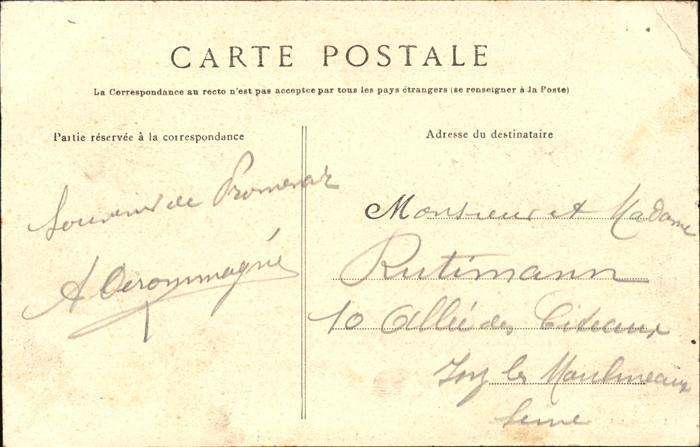 CARTE POSTALE
La Correspondance au recto n'est pas acceptée par tous les pays étrangers (se renseigner à la Poste)
Partie réservée à la correspondance
Souvenir de Promenade
A Derommagné
Adresse du destinataire
Monsieur et Madame
Rutimann
10 Allée des Citeaux
Issy les Moulineaux
Seine